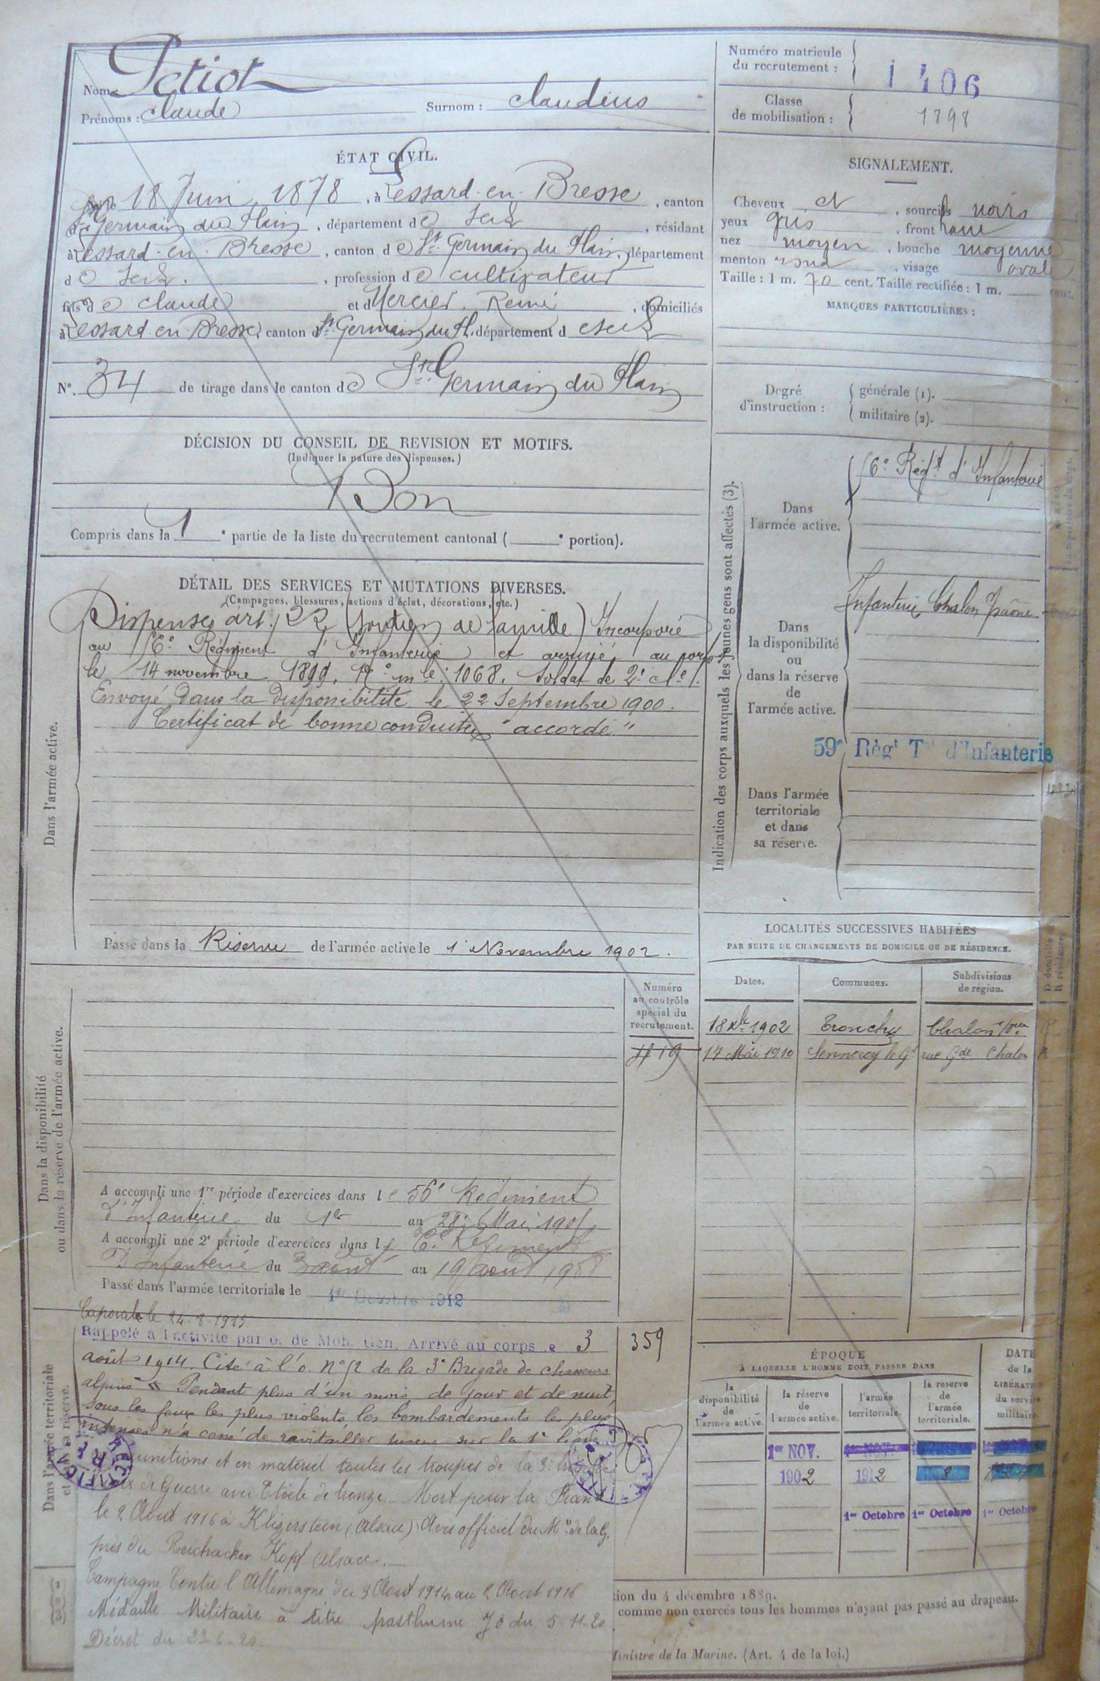 Nom : Petiot
Prénoms : Claude Surnom : Claudius
Numéro matricule du recrutement : 1406
Classe de mobilisation : 1898
ÉTAT CIVIL.
18 Juin 1878, à Lessard-en-Bresse, canton
St Germain du Plain, département de S et L, résidant
à Lessard-en-Bresse, canton de St Germain du Plain, département
de S et L, profession de cultivateur
fils de Claude et d Mercier Reine, domiciliés
à Lessard en Bresse, canton d St Germain du Pl, département d S et L
N° 34 de tirage dans le canton de St Germain du Plain
SIGNALEMENT.
Cheveux et, sourcils noirs
yeux gris, front
nez moyen, bouche moyenne
menton rond, visage ovale
Taille : 1 m. 70 cent. Taille rectifiée : 1 m. cent.
MARQUES PARTICULIÈRES :
Degré d'instruction : générale (1). militaire (2).
DÉCISION DU CONSEIL DE REVISION ET MOTIFS.
(Indiquer la nature des dispenses.)
Bon
Compris dans la 1e partie de la liste du recrutement cantonal ( e portion).
DÉTAIL DES SERVICES ET MUTATIONS DIVERSES.
(Campagnes, blessures, actions d'éclat, décorations, etc.)
Dispensé art. 22 (soutien de famille) Incorporé
au Régiment d'Infanterie et arrivé au corps
le 14 novembre 1899. N° mle 1068. Soldat de 2e cl.
Envoyé dans la disponibilité le 22 Septembre 1900.
Certificat de bonne conduite "accordé"
Dans l'armée active.
Passé dans la Réserve de l'armée active le 1 Novembre 1902.
Indication des corps auxquels les jeunes gens sont affectés (3).
Dans l'armée active.
Régt d'Infanterie
Dans la disponibilité ou dans la réserve de l'armée active.
Infanterie Chalon s/Saône
59e Régt Tal d'Infanterie
Dans l'armée territoriale et dans sa réserve.
LOCALITÉS SUCCESSIVES HABITÉES
PAR SUITE DE CHANGEMENTS DE DOMICILE OU DE RÉSIDENCE.
Dates. Communes. Subdivisions de région.
1902 Tronchy Chalon
17 Mai 1910 Sennecey le Gd rue Gde Chalon
Dans la disponibilité ou dans la réserve de l'armée active.
Numéro au contrôle spécial du recrutement.
A accompli une 1re période d'exercices dans le 56e Régiment
d'Infanterie du 1er au 28 Mai
A accompli une 2e période d'exercices dans le Régiment
d'Infanterie du 3 août au 19 août 1908
Passé dans l'armée territoriale le 1er Octobre 1912
Caporal le 24-8-1915
Rappelé à l'activité par o. de Mob. Gén. Arrivé au corps le 3
359
août 1914. Cité à l'o. N° 12 de la 3e Brigade de chasseurs
alpins "Pendant plus d'un mois, de jour et de nuit
sous les feux les plus violents, les bombardements les plus
intenses n'a cessé de ravitailler
munitions et en matériel toutes les troupes de la
de Guerre avec Etoile de bronze. Mort pour la France
le 2 Août 1916 à (Alsace) Avis officiel du Mre de la G.
près du Reichacker Kopf Alsace.
Campagne Contre l'Allemagne du 3 Août 1914 au 2 Août 1916
Médaille Militaire à titre posthume JO du 5.11.20
Décret du
Dans l'armée territoriale et sa réserve.
ÉPOQUE
À LAQUELLE L'HOMME DOIT PASSER DANS
la disponibilité de l'armée active. la réserve de l'armée active. l'armée territoriale. la réserve de l'armée territoriale.
DATE de la LIBÉRATION du service militaire.
1er NOV. 1902 1912
1er Octobre 1er Octobre 1er Octobre
tion du 4 décembre 1889.
comme non exercés tous les hommes n'ayant pas passé au drapeau.
Ministre de la Marine. (Art. 4 de la loi.)